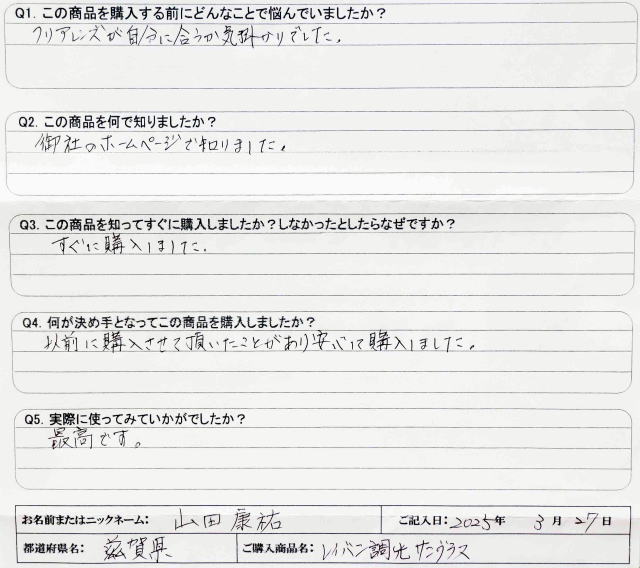 Q1. この商品を購入する前にどんなことで悩んでいましたか？
クリアレンズが自分に合うか気掛かりでした。
Q2. この商品を何で知りましたか？
御社のホームページで知りました。
Q3. この商品を知ってすぐに購入しましたか？しなかったとしたらなぜですか？
すぐに購入しました。
Q4. 何が決め手となってこの商品を購入しましたか？
以前に購入させて頂いたことがあり安心して購入しました。
Q5. 実際に使ってみていかがでしたか？
最高です。
お名前またはニックネーム： 山田康祐 ご記入日：2025年 3月 27日
都道府県名： 滋賀県 ご購入商品名：レイバン調光サングラス